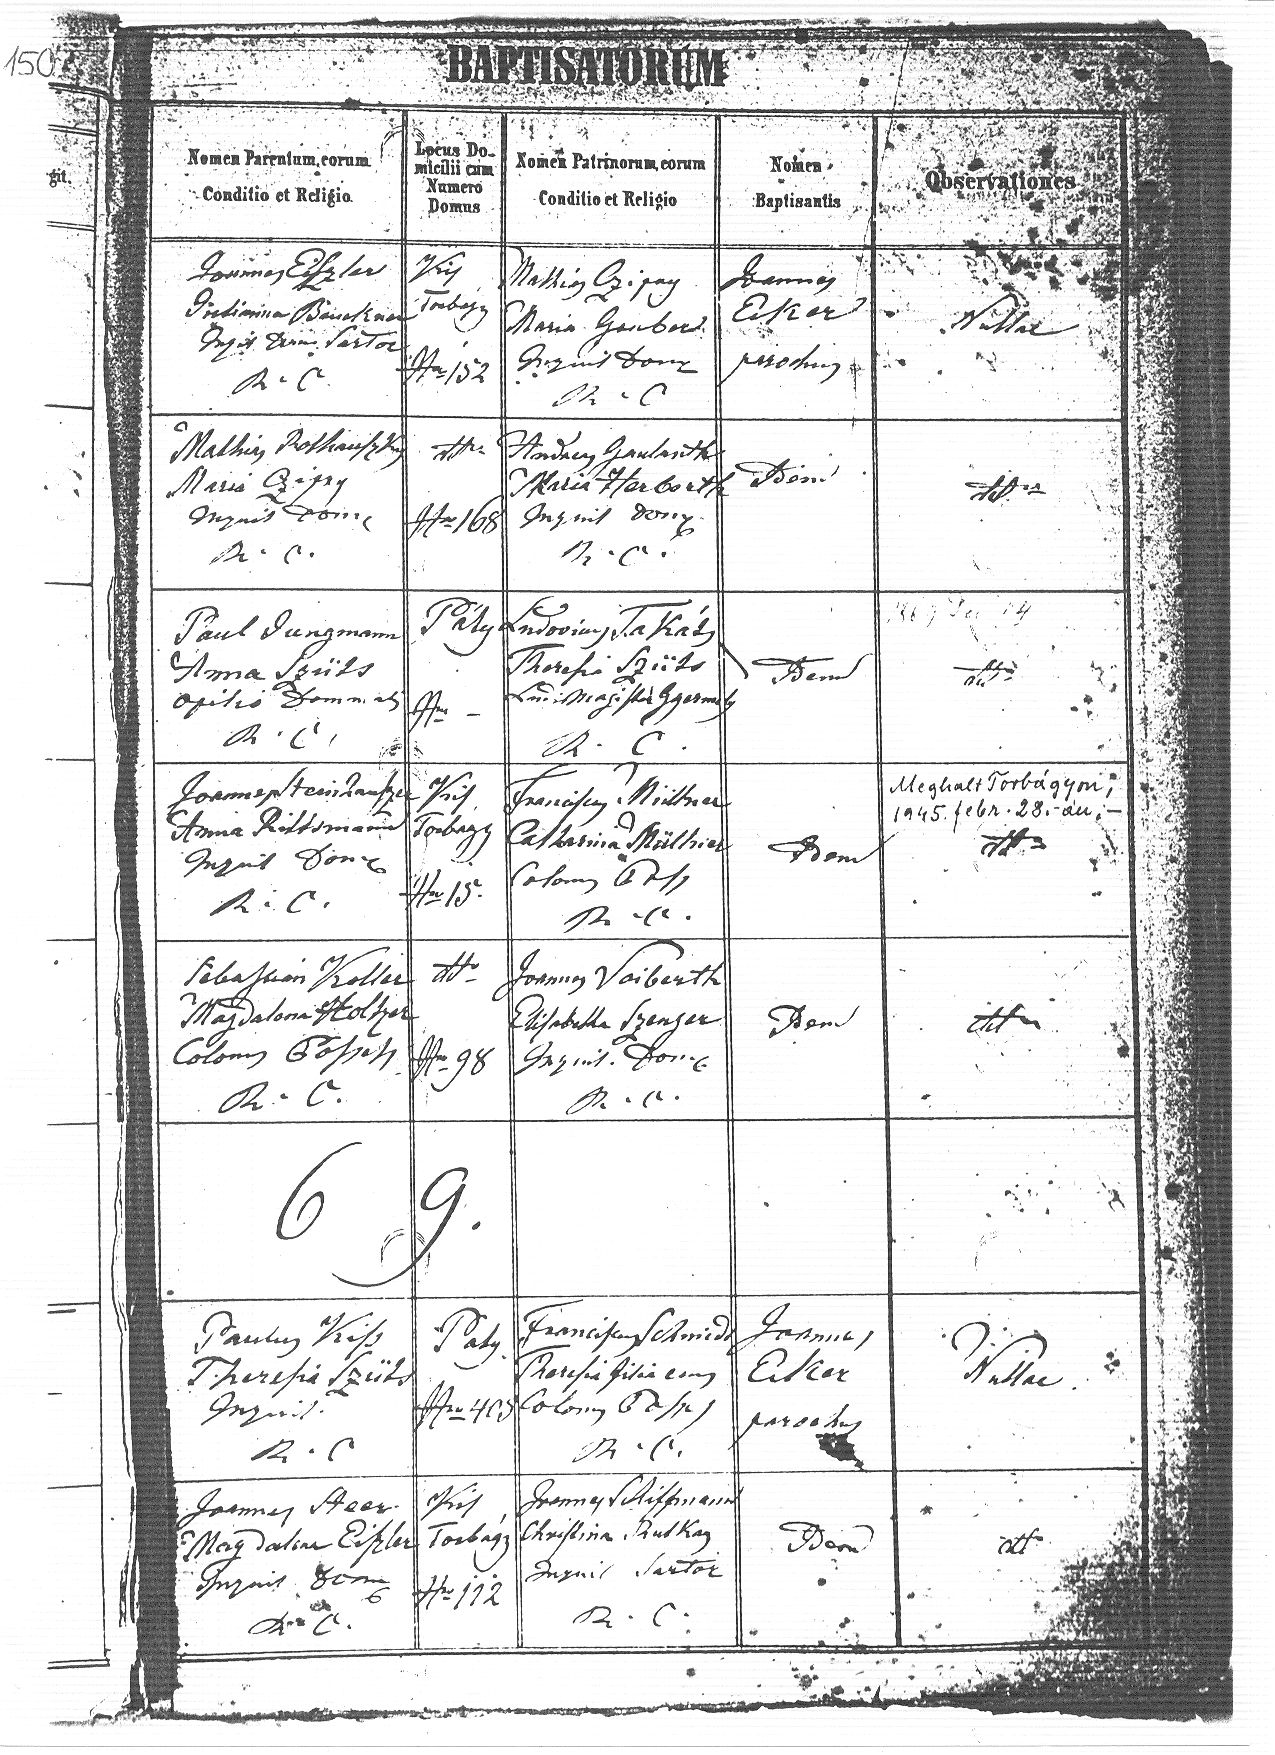 150
BAPTISATORUM
git.
Nomen Parentum, eorum
Conditio et Religio.
Locus Do-
micilii cum
Numero
Domus
Nomen Patrinorum, eorum
Conditio et Religio
Nomen
Baptisantis
Observationes
Joannes Eiszler
Inquil Dom. Sartor
R. C.
Kis
Torbágy
Nro 152
Mathias Czipry
Maria
Inquil Dom
R. C
Joannes
Eiker
parochus
Nullae
Mathias
Maria Czipry
Inquil Dom
R. C.
dtto
Nro 168
Andreas
Maria Herborth
Inquil Dom
R. C.
Idem
dtto
Paul Jungmann
Anna Szüts
opilio Dominalis
R. C.
Páty
Nro -
Ludovicus Takáts
Theresia Szüts
Ludi Magister Gyermely
R. C.
Idem
dtto
Joannes Steinhauszer
Anna Rittsmann
Inquil Dom
R. C.
Kis
Torbágy
Nro 15.
Franciscus Müllner
Catharina Müllner
Colonus Poss
R. C.
Idem
Meghalt Torbágyon,
1945. febr. 28.-án,-
dtto
Sebastian Koller
Magdalena Holtzer
Colonus Possess
R. C.
dtto
Nro 98
Joannes Soiberth
Elisabetha Szenger
Inquil. Dom
R. C.
Idem
dtto
69.
Paulus Kiss
Theresia Szüts
Inquil.
R. C
Páty
Nro 403
Franciscus Schmidt
Theresia filia eius
Colonus Poss
R. C.
Joannes
Eiker
parochus
Nullae.
Joannes Steer
Magdalena Eiszler
Inquil Dom
R. C.
Kis
Torbágy
Nro 112
Joannes Schiffmann
Christina Rutkay
Inquil Sartor
R. C.
Idem
dtto